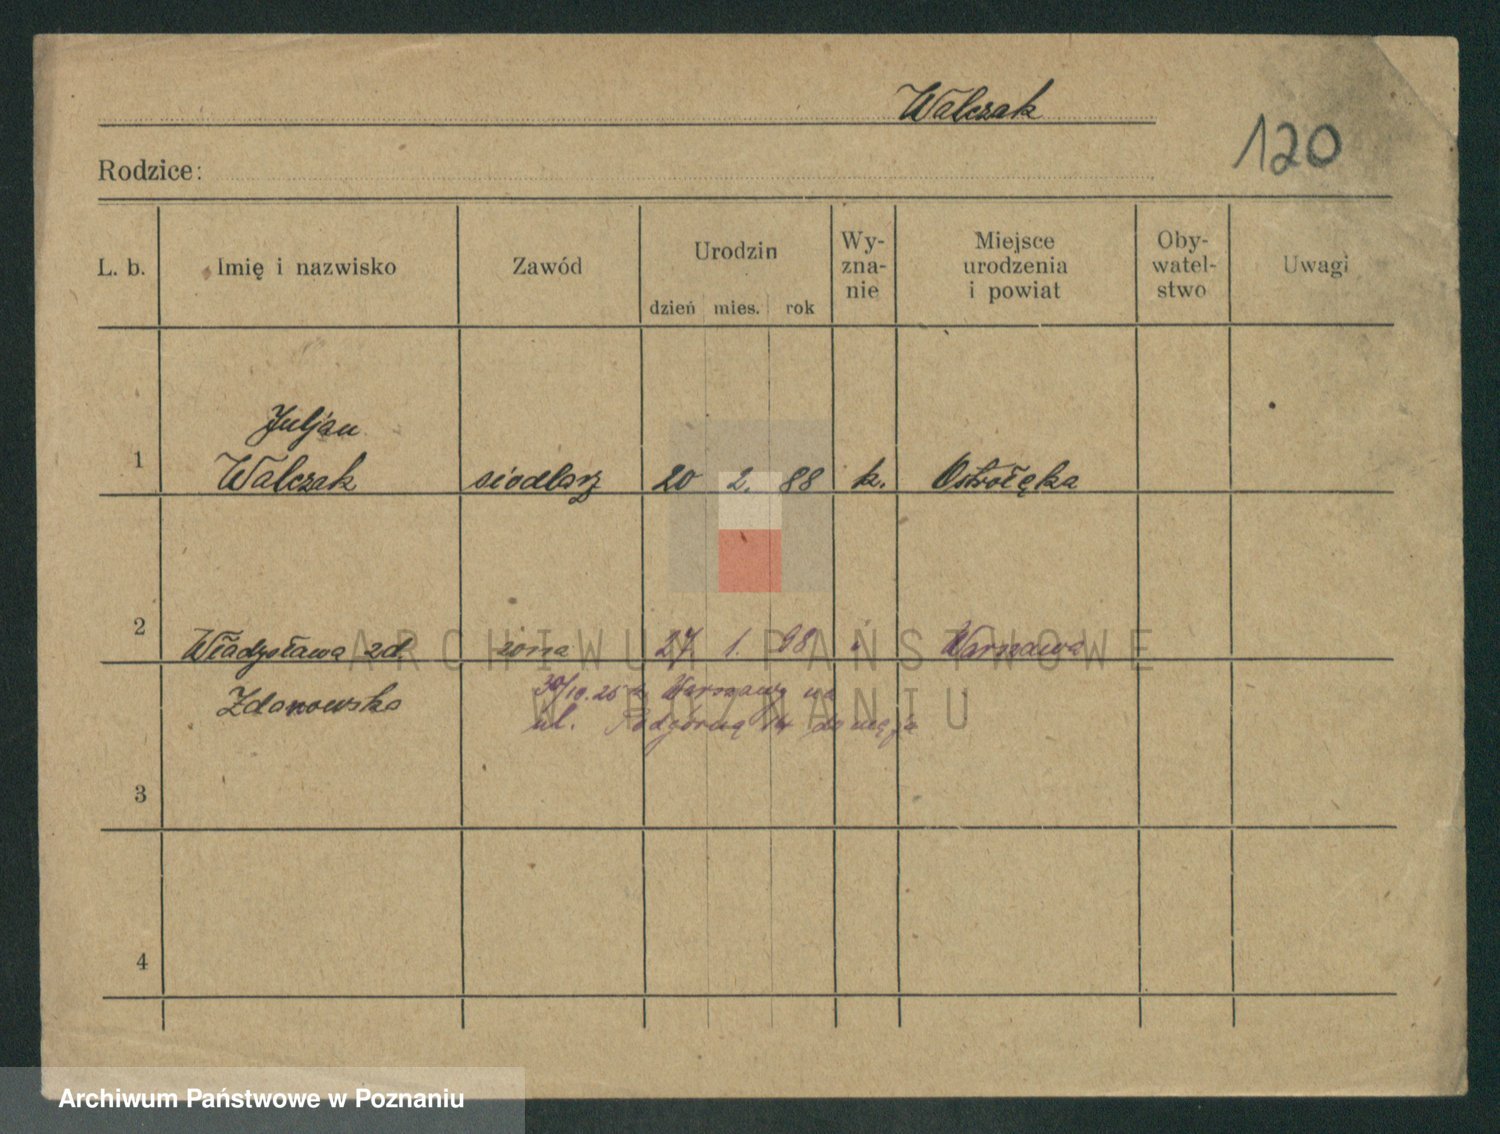 Walczak
120
Rodzice:
L. b. Imię i nazwisko Zawód Urodzin dzień mies. rok Wy-zna-nie Miejsce urodzenia i powiat Oby-watel-stwo Uwagi
Juljan
1 Walczak siodlarz 20 2. 88 k. Ostrołęka
2 Władysława zd. żona 27 1. 98 Warszawa
Zdanowska
30/10.25 z Warszawy na
ul. Podgórną 14 do męża
3
4
ARCHIWUM PAŃSTWOWE
W POZNANIU
Archiwum Państwowe w Poznaniu